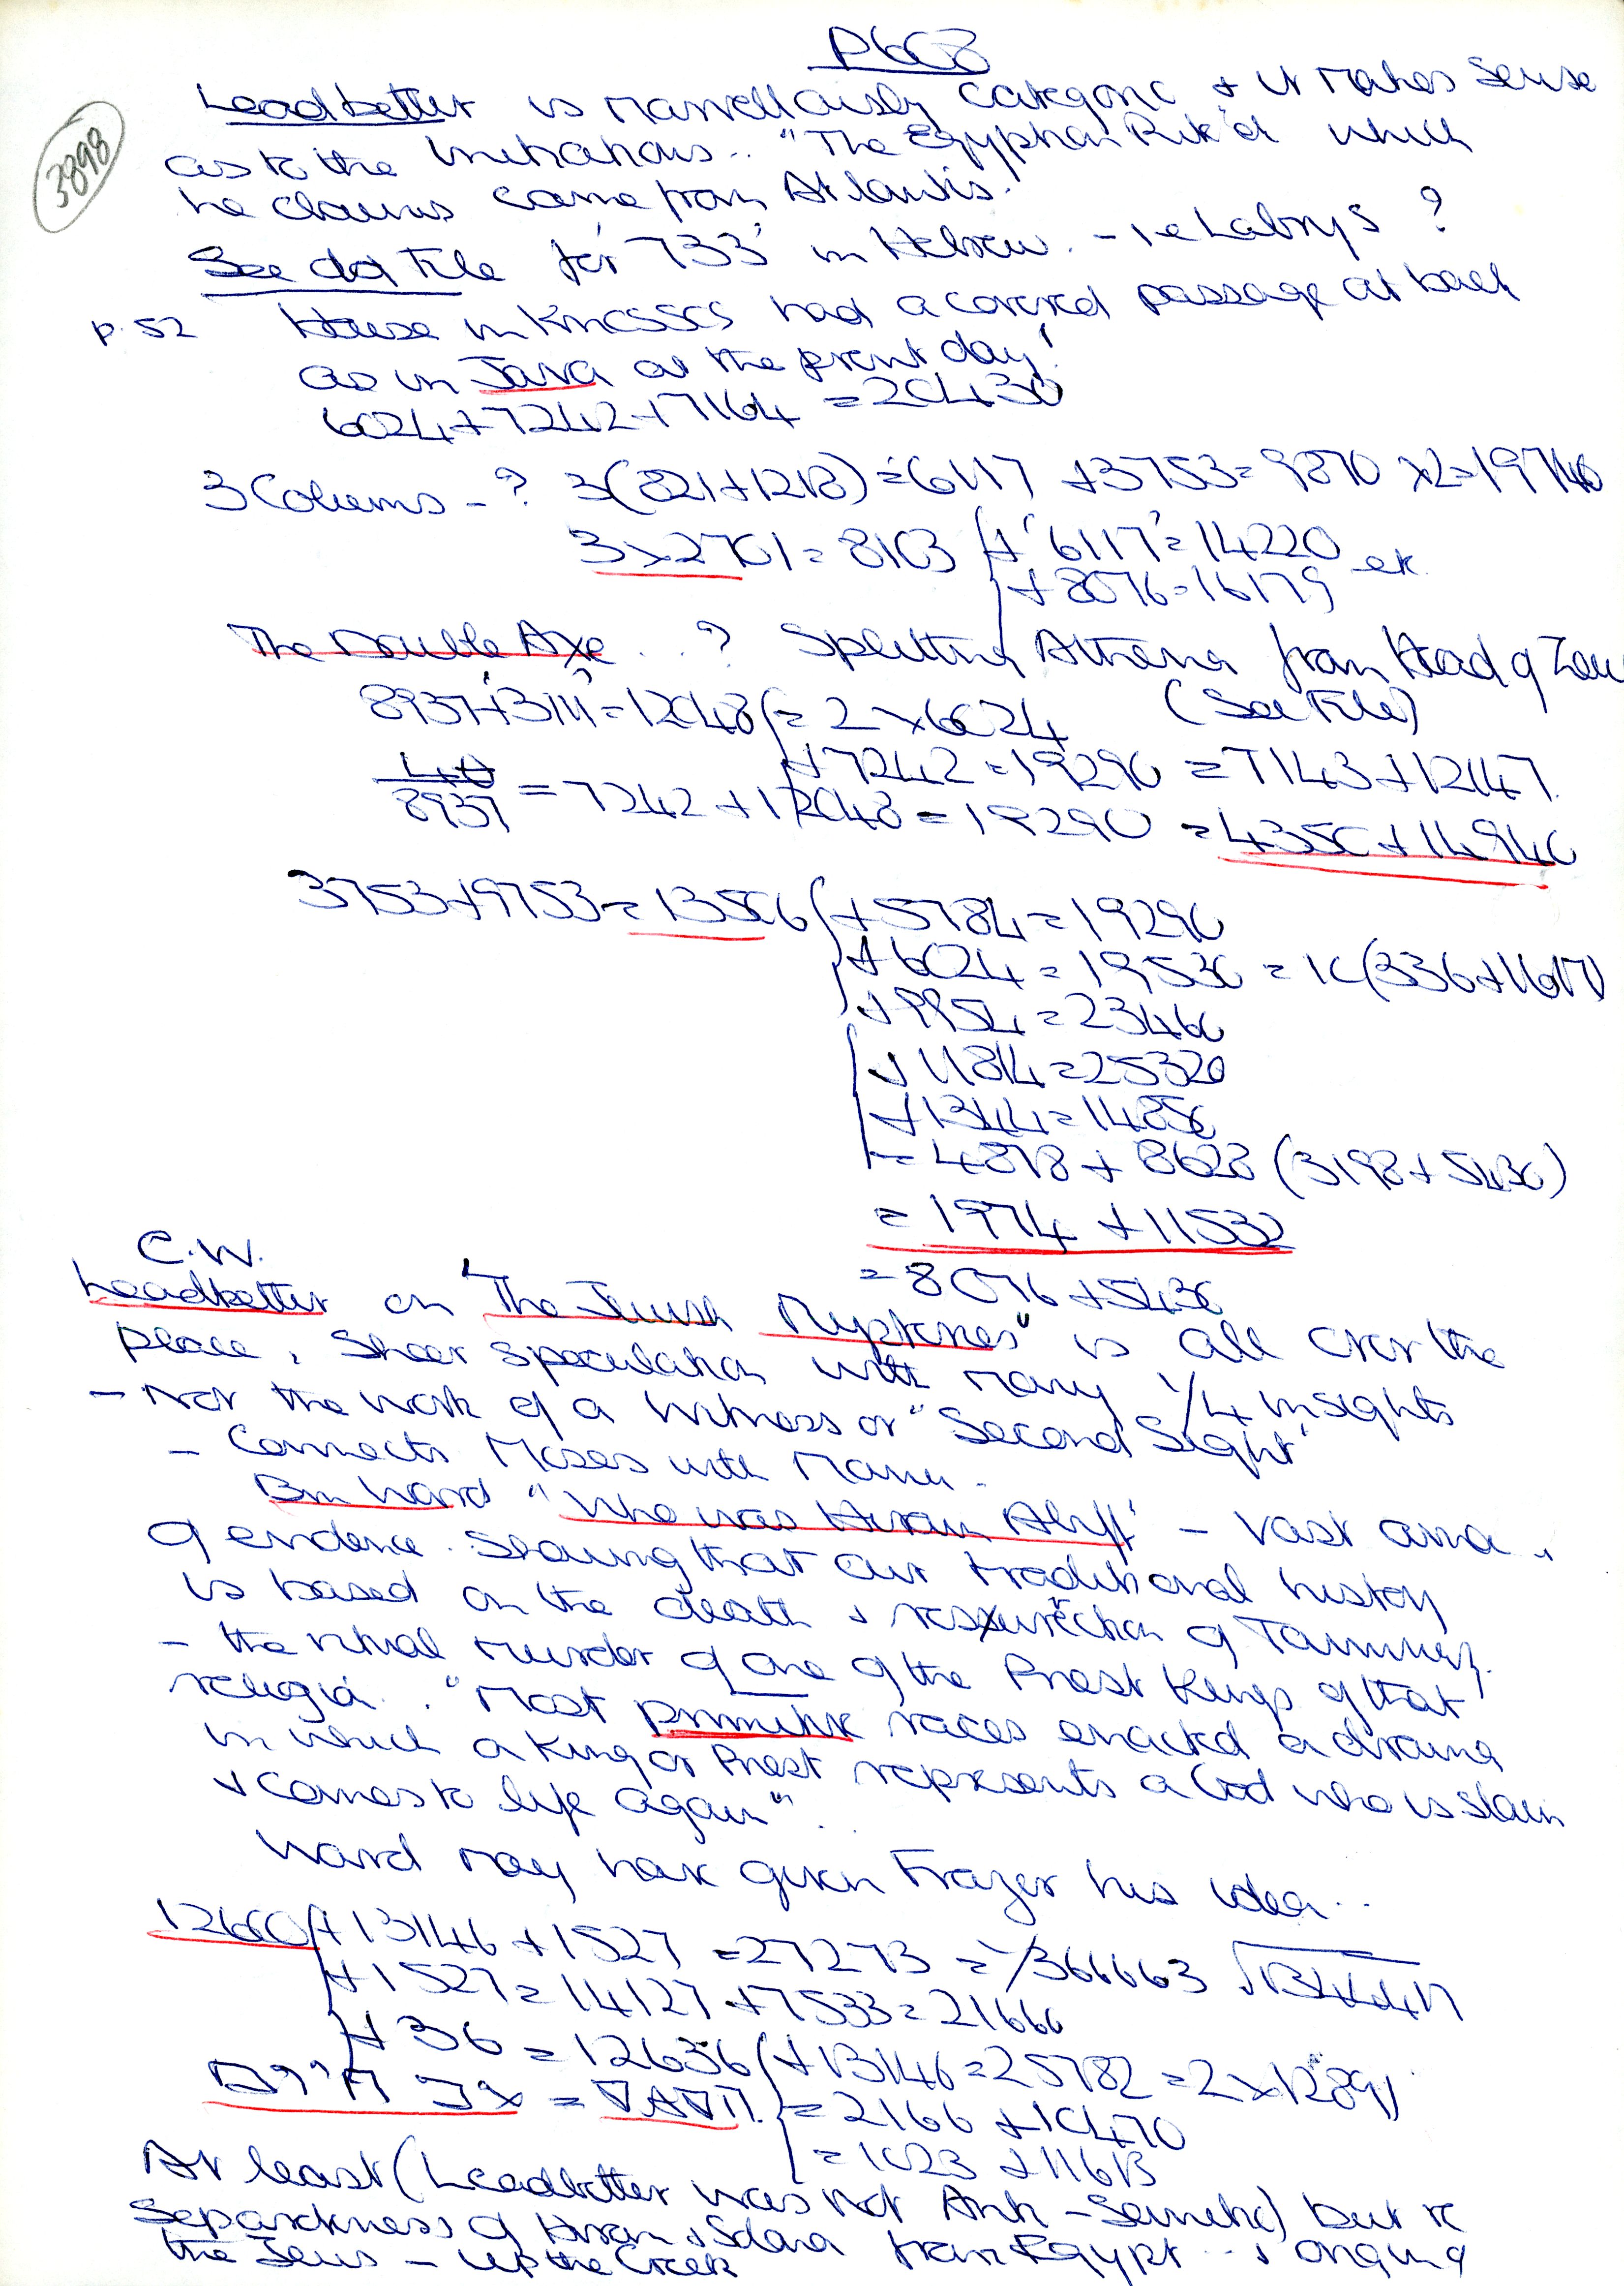 P668
3898
Leadbetter is marvellously categoric + it makes sense
as to the Initiations.. "The Egyptian Rite" of which
he claims came from Atlantis.
See old File for '733' in Hebrew. - ie Labrys ?
p. 52 House in Knossos had a covered passage at back
as in Java at the present day!
6024+7242+7164 = 20430
3 Colums - ? 3(821+1218) = 6117 +3753 = 9870 x2 = 19740
3x2701 = 8103 + '6117' = 14220 etc
+ 8076 = 16179
The Double Axe . . ? Splitting Athena from Head of Zeus
8937+'3111' = 12048 = 2 x 6024 (See File)
+7242 = 19290 = 7143+12147.
8937 = 7242 + 12048 = 19290 = 4350 + 14940
3753+9753 = 13506 +5784 = 19290
+6024 = 19530 = 10(336+1617)
+9954 = 23460
+11814 = 25320
+1344 = 14850
= 4878 + 8628 (3198+5430)
= 1974 + 11532
= 8076 +5430
C.W.
Leadbetter on "The Jewish Mysteries" is all over the
place, sheer speculation with many 1/4 insights
- Not the work of a witness or "Second Sight"
- Connects Moses with Manu.
Bro Ward "Who was Hiram Abiff" - vast area
of evidence. Showing that our traditional history
is based on the death + resurrection of Tammuz.
- the ritual murder of one of the Priest Kings of that
religion.. "Most primitive races enacted a drama
in which a King or Priest represents a God who is slain
+ comes to life again"..
Ward may have given Frazer his idea...
12600 +13146 +1527 = 27273 = 1/366663 √134447
+1527 = 14127 +7533 = 21660
+ 36 = 12636 +13146 = 25782 = 2x12891
= 2166 +10470
= 1023 +11613
At least (Leadbetter was not Anti-Semitic) but re
Separateness of Hiram + Solomon from Egypt .. + origin of
the Jews - up the Creek